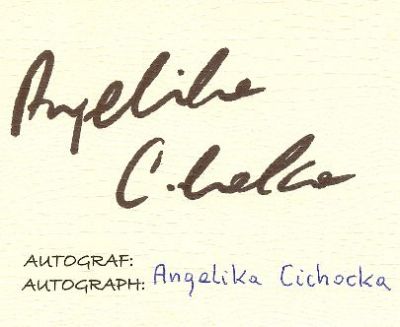 Angelika
Cichocka
AUTOGRAF:
AUTOGRAPH: Angelika Cichocka